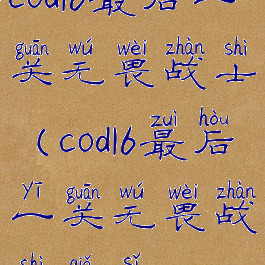 cod16最后一
guān wú wèi zhàn shì
关无畏战士
zuì hòu
(cod16最后
yī guān wú wèi zhàn
一关无畏战
shì sǐ